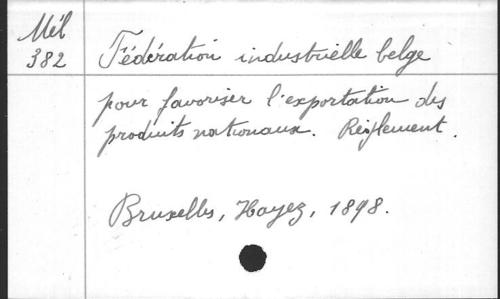 Mél
382
Fédération industrielle belge
pour favoriser l'exportation des
produits nationaux. Règlement.
Bruxelles, Hayez, 1898.